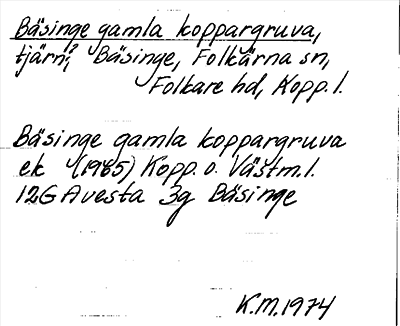 Bäsinge gamla koppargruva,
tjärn?, Bäsinge, Folkärna sn,
Folkare hd, Kopp. l.
Bäsinge gamla koppargruva
ek (1965) Kopp. o. Västm.l.
12G Avesta 3g Bäsinge
K.M.1974